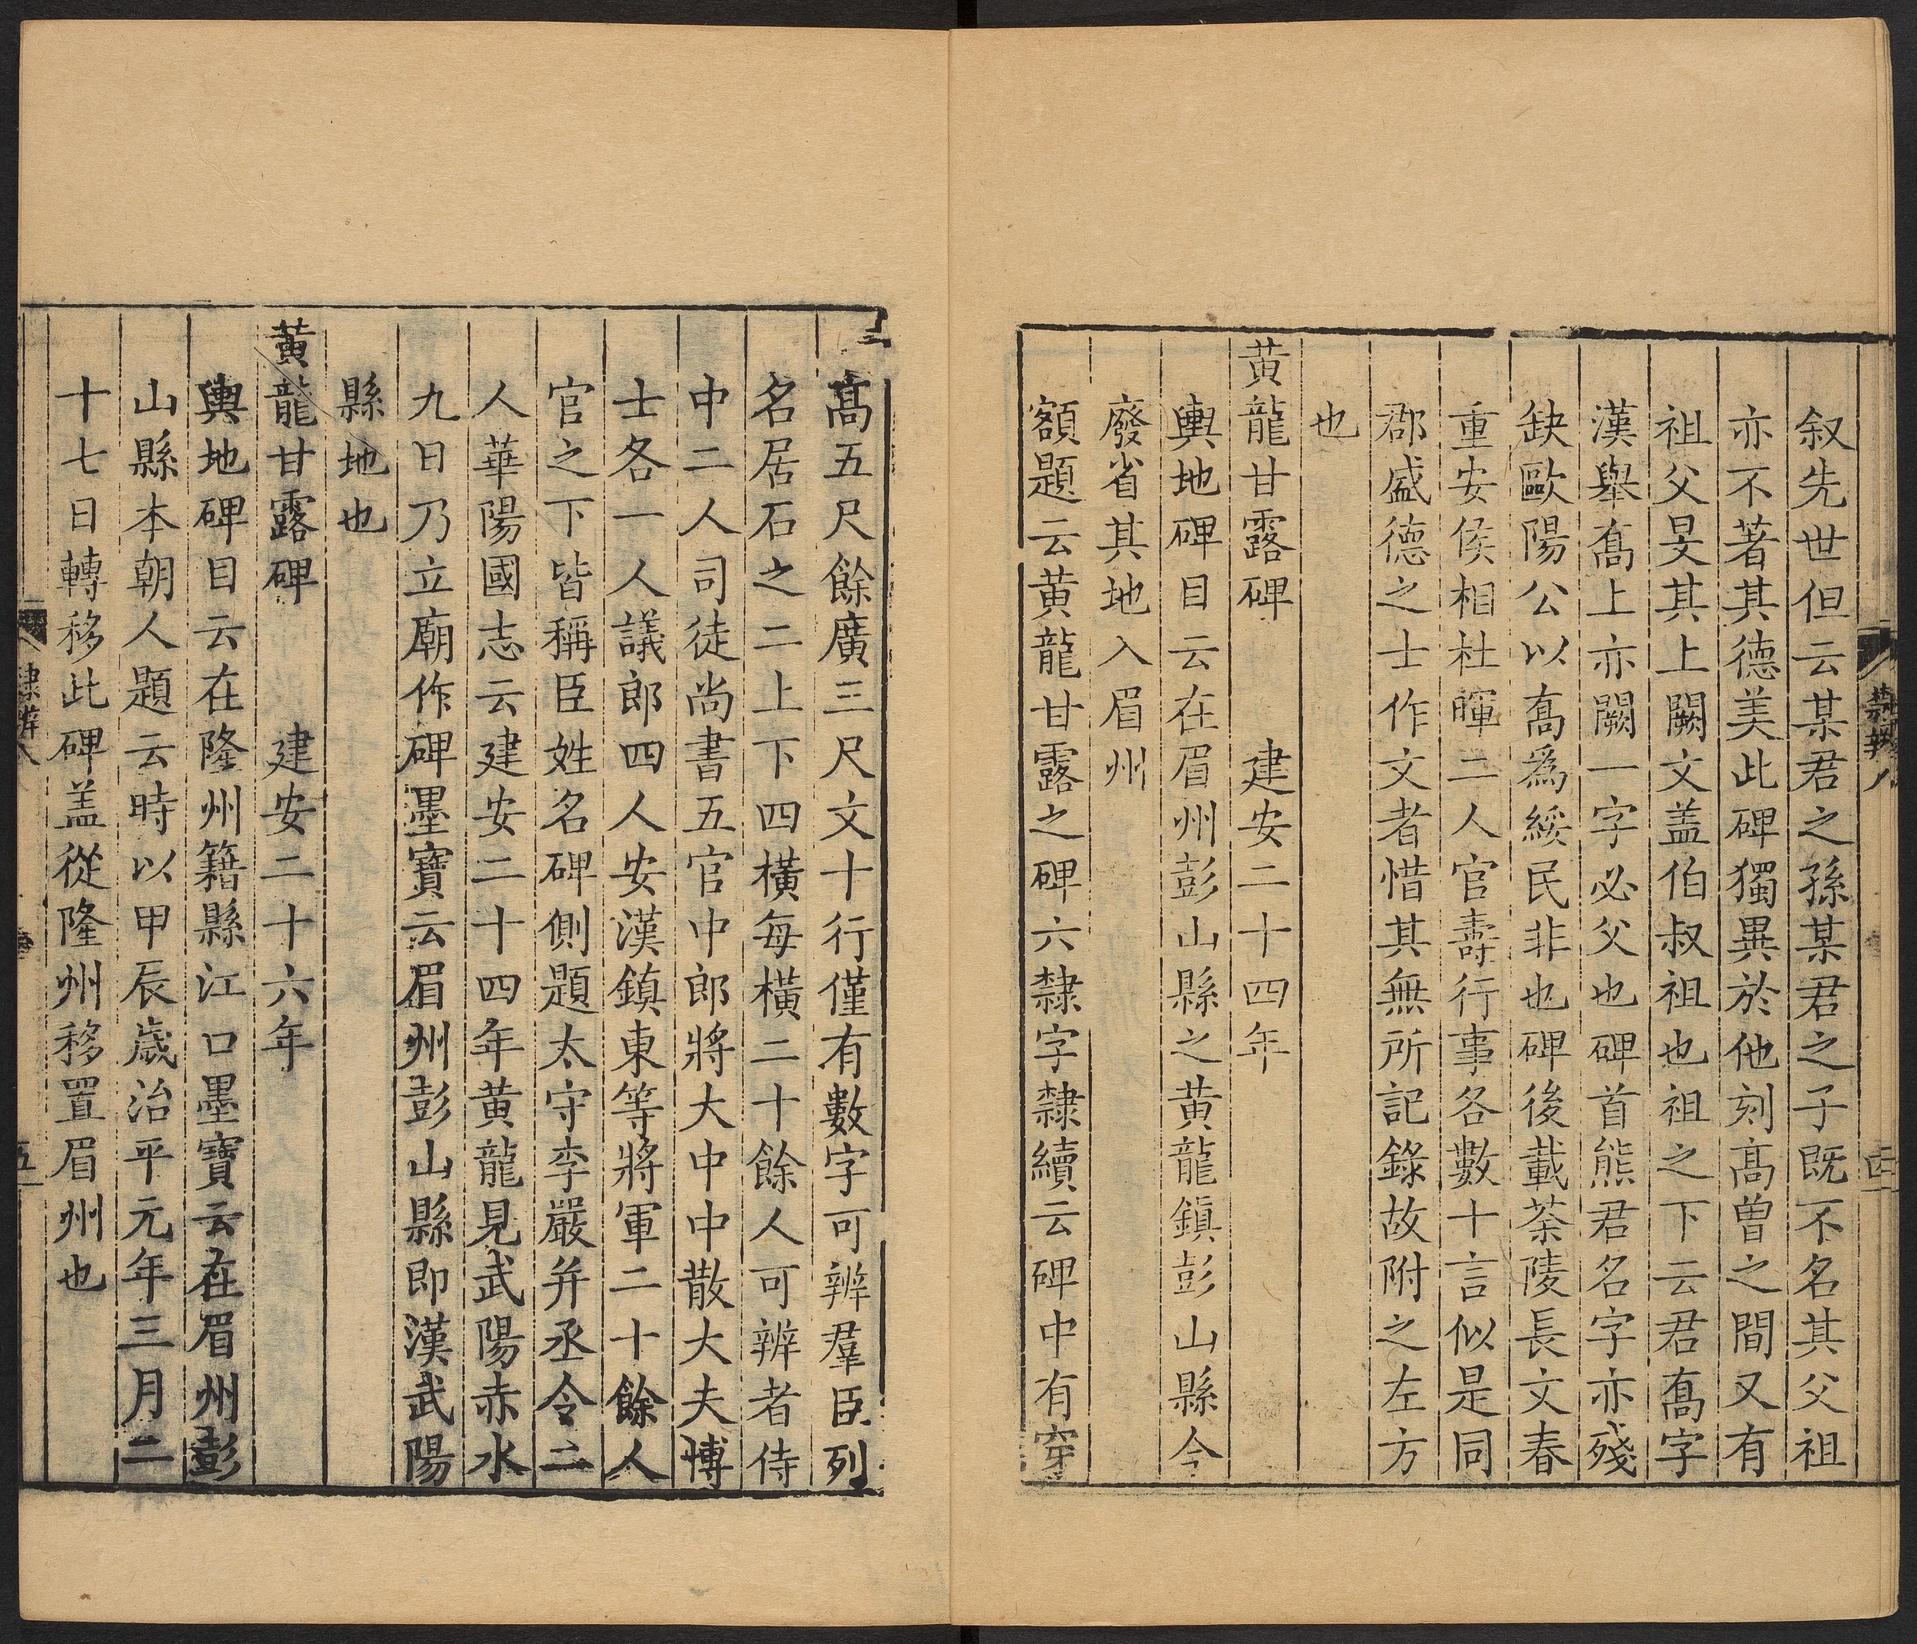 叙先世但云某君之孫某君之子既不名其父祖
亦不著其德美此碑獨異於他刻髙曾之間又有
祖父旻其上闕文盖伯叔祖也祖之下云君喬字
漢舉髙上亦闕一字必父也碑首熊君名字亦殘
缺歐陽公以喬爲綏民非也碑後載荼陵長文春
重安侯相杜暉二人官壽行事各數十言似是同
郡盛德之士作文者惜其無所記錄故附之左方
也
黄龍甘露碑 建安二十四年
輿地碑目云在眉州彭山縣之黄龍鎮彭山縣今
廢省其地入眉州
額題云黄龍甘露之碑六隸字隸續云碑中有穿
髙五尺餘廣三尺文十行僅有數字可辨羣臣列
名居石之二上下四橫每橫二十餘人可辨者侍
中二人司徒尚書五官中郎將大中中散大夫博
士各一人議郎四人安漢鎮東等將軍二十餘人
官之下皆稱臣姓名碑側題太守李嚴并丞令二
人華陽國志云建安二十四年黄龍見武陽赤水
九日乃立廟作碑墨寶云眉州彭山縣即漢武陽
縣地也
黄龍甘露碑 建安二十六年
輿地碑目云在隆州籍縣江口墨寶云在眉州彭
山縣本朝人題云時以甲辰歲治平元年三月二
十七日轉移此碑盖從隆州移置眉州也
隸辨八
五